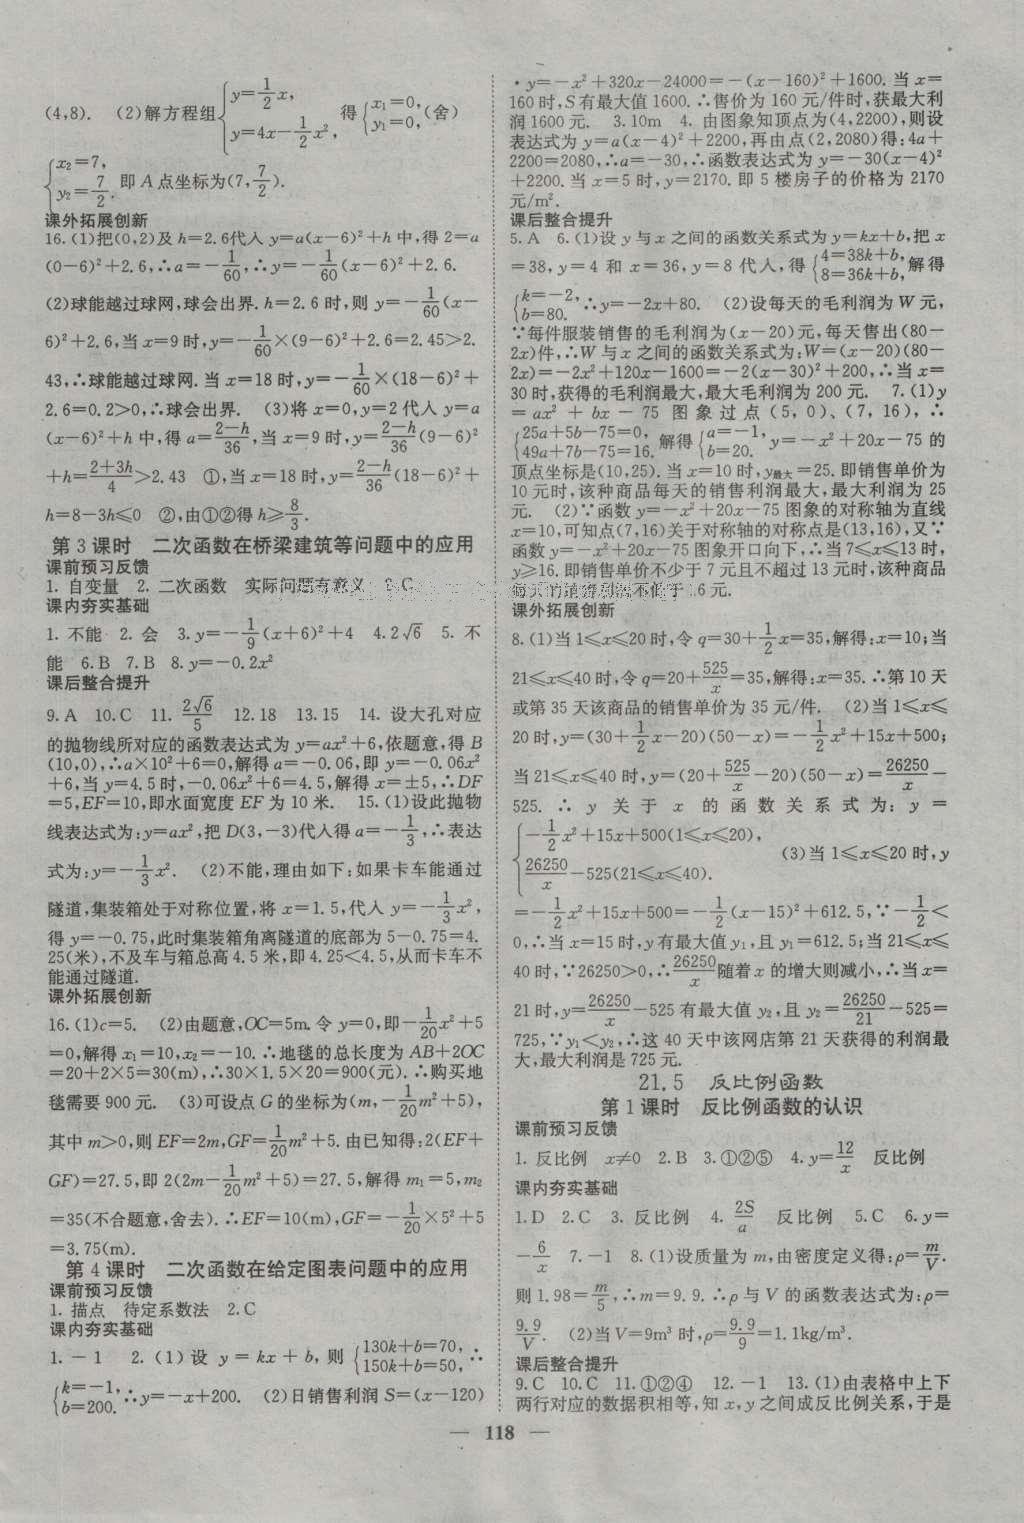 (4,8).　(2)解方程组{y=1/2x, y=4x-1/2x², 得{x₁=0, y₁=0,(舍)
{x₂=7, y₂=7/2. 即A点坐标为(7,7/2).
课外拓展创新
16.(1)把(0,2)及h=2.6代入y=a(x-6)²+h中,得2=a
(0-6)²+2.6,∴a=-1/60,∴y=-1/60(x-6)²+2.6.
(2)球能越过球网,球会出界.h=2.6时,则y=-1/60(x-
6)²+2.6,当x=9时,y=-1/60×(9-6)²+2.6=2.45>2.
43,∴球能越过球网.当x=18时,y=-1/60×(18-6)²+
2.6=0.2>0,∴球会出界.　(3)将x=0,y=2代入y=a
(x-6)²+h中,得a=2-h/36,当x=9时,y=2-h/36(9-6)²
+h=2+3h/4>2.43　①,当x=18时,y=2-h/36(18-6)²+
h=8-3h≤0　②,由①②得h≥8/3.
第3课时　二次函数在桥梁建筑等问题中的应用
课前预习反馈
1. 自变量　2. 二次函数　实际问题有意义　3.C
课内夯实基础
1. 不能　2. 会　3.y=-1/9(x+6)²+4　4.2√6　5. 不
能　6.B　7.B　8.y=-0.2x²
课后整合提升
9.A　10.C　11. 2√6/5　12.18　13.15　14. 设大孔对应
的抛物线所对应的函数表达式为y=ax²+6,依题意,得B
(10,0),∴a×10²+6=0,解得a=-0.06,即y=-0.06x²
+6,当y=4.5时,-0.06x²+6=4.5,解得x=±5,∴DF
=5,EF=10,即水面宽度EF为10米.　15.(1)设此抛物
线表达式为:y=ax²,把D(3,-3)代入得a=-1/3,∴表达
式为:y=-1/3x².　(2)不能,理由如下:如果卡车能通过
隧道,集装箱处于对称位置,将x=1.5,代入y=-1/3x²,
得y=-0.75,此时集装箱角离隧道的底部为5-0.75=4.
25(米),不及车与箱总高4.5米,即4.25<4.5,从而卡车不
能通过隧道.
课外拓展创新
16.(1)c=5.　(2)由题意,OC=5m.令y=0,即-1/20x²+5
=0,解得x₁=10,x₂=-10.∴地毯的总长度为AB+2OC
=20+2×5=30(m),∴30×1.5×20=900(元).∴购买地
毯需要900元.　(3)可设点G的坐标为(m,-1/20m²+5),
其中m>0,则EF=2m,GF=1/20m²+5.由已知得:2(EF+
GF)=27.5,即2(2m-1/20m²+5)=27.5,解得m₁=5,m₂
=35(不合题意,舍去).∴EF=10(m),GF=-1/20×5²+5
=3.75(m).
第4课时　二次函数在给定图表问题中的应用
课前预习反馈
1. 描点　待定系数法　2.C
课内夯实基础
1. -1　2.(1)设y=kx+b,则{130k+b=70, 150k+b=50,∴
{k=-1, b=200.∴y=-x+200.　(2)日销售利润S=(x-120)
·y=-x²+320x-24000=-(x-160)²+1600.当x=
160时,S有最大值1600.∴售价为160元/件时,获最大利
润1600元.　3.10m　4. 由图象知顶点为(4,2200),则设
表达式为y=a(x-4)²+2200,再由点(2,2080)得:4a+
2200=2080,∴a=-30,∴函数表达式为y=-30(x-4)²
+2200.当x=5时,y=2170.即5楼房子的价格为2170
元/m².
课后整合提升
5.A　6.(1)设y与x之间的函数关系式为y=kx+b,把x
=38,y=4和x=36,y=8代入,得{4=38k+b, 8=36k+b,解得
{k=-2, b=80.∴y=-2x+80.　(2)设每天的毛利润为W元,
∵每件服装销售的毛利润为(x-20)元,每天售出(80-
2x)件,∴W与x之间的函数关系式为:W=(x-20)(80-
2x)=-2x²+120x-1600=-2(x-30)²+200,∴当x=
30时,获得的毛利润最大,最大毛利润为200元.　7.(1)y
=ax²+bx-75图象过点(5,0)、(7,16),∴
{25a+5b-75=0, 49a+7b-75=16.解得{a=-1, b=20. y=-x²+20x-75的
顶点坐标是(10,25).当x=10时,y最大=25.即销售单价为
10元时,该种商品每天的销售利润最大,最大利润为25
元.　(2)∵函数y=-x²+20x-75图象的对称轴为直线
x=10,可知点(7,16)关于对称轴的对称点是(13,16),又∵
函数y=-x²+20x-75图象开口向下,∴当7≤x≤13时,
y≥16.即销售单价不少于7元且不超过13元时,该种商品
每天的销售利润不低于16元.
课外拓展创新
8.(1)当1≤x≤20时,令q=30+1/2x=35,解得:x=10;当
21≤x≤40时,令q=20+525/x=35,解得:x=35.∴第10天
或第35天该商品的销售单价为35元/件.　(2)当1≤x≤
20时,y=(30+1/2x-20)(50-x)=-1/2x²+15x+500;
当21≤x≤40时,y=(20+525/x-20)(50-x)=26250/x-
525.∴y关于x的函数关系式为:y=
{-1/2x²+15x+500(1≤x≤20), 26250/x-525(21≤x≤40).　(3)当1≤x≤20时,y
=-1/2x²+15x+500=-1/2(x-15)²+612.5,∵-1/2<
0,∴当x=15时,y有最大值y₁,且y₁=612.5;当21≤x≤
40时,∵26250>0,∴26250/x随着x的增大则减小,∴当x=
21时,y=26250/x-525有最大值y₂,且y₂=26250/21-525=
725,∵y₁<y₂,∴这40天中该网店第21天获得的利润最
大,最大利润是725元.
21.5　反比例函数
第1课时　反比例函数的认识
课前预习反馈
1. 反比例　x≠0　2.B　3.①②⑤　4.y=12/x　反比例
课内夯实基础
1.D　2.C　3. 反比例　4. 2S/a　反比例　5.C　6.y=
-6/x　7.-1　8.(1)设质量为m,由密度定义得:ρ=m/V.
则1.98=m/5,∴m=9.9.∴ρ与V的函数表达式为:ρ=
9.9/V.　(2)当V=9m³时,ρ=9.9/9=1.1kg/m³.
课后整合提升
9.C　10.C　11.①②④　12.-1　13.(1)由表格中上下
两行对应的数据积相等,知x,y之间成反比例关系,于是
— 118 —